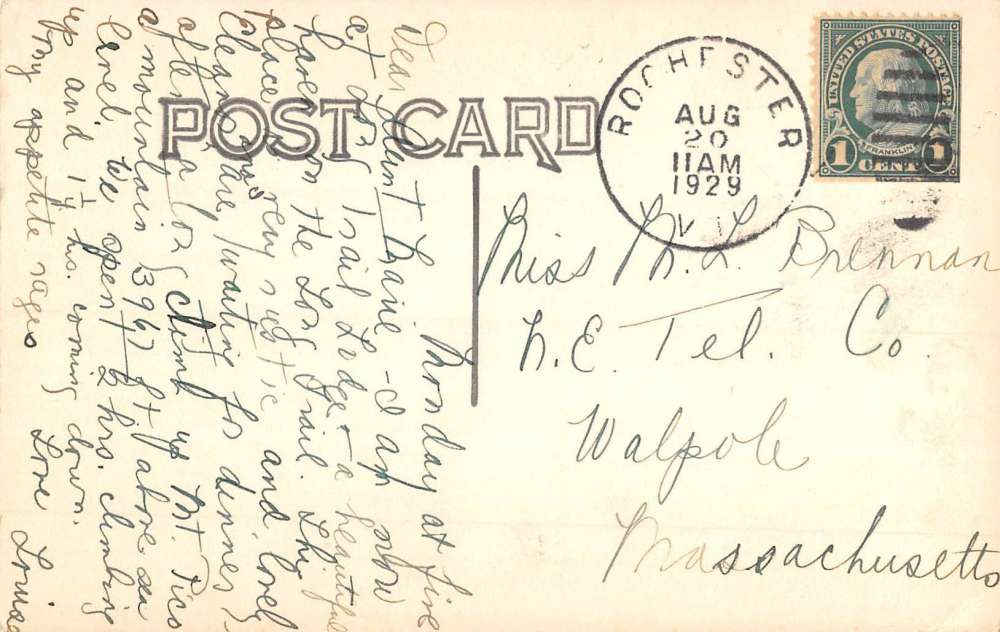 POST CARD
ROCHESTER
AUG
20
11 AM
1929
UNITED STATES POSTAGE
FRANKLIN
1 CENT 1
Monday at five
Dear Aunt - I am now
at Long Trail Lodge - a beautiful
haven on the Long Trail. The
place is very rustic and lovely
are waiting for dinner
after a long climb up Mt. Pico
a mountain 3967 ft above sea
level. We spent 2 hrs. climbing
up and 1½ hrs. coming down.
My appetite rages
Love Louise
Miss M. L. Brennan
N. E. Tel. Co.
Walpole
Massachusetts